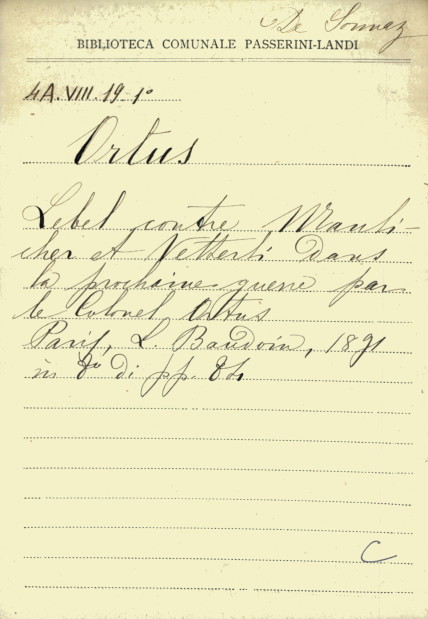 De Sonnaz
BIBLIOTECA COMUNALE PASSERINI-LANDI
4A.VIII.19.1º
Ortus
Lebel contre Manli-
cher et Vetterli dans
la prochaine guerre par
le Colonel Ortus
Paris, L. Baudoin, 1891
in 8º di pp. 84
C